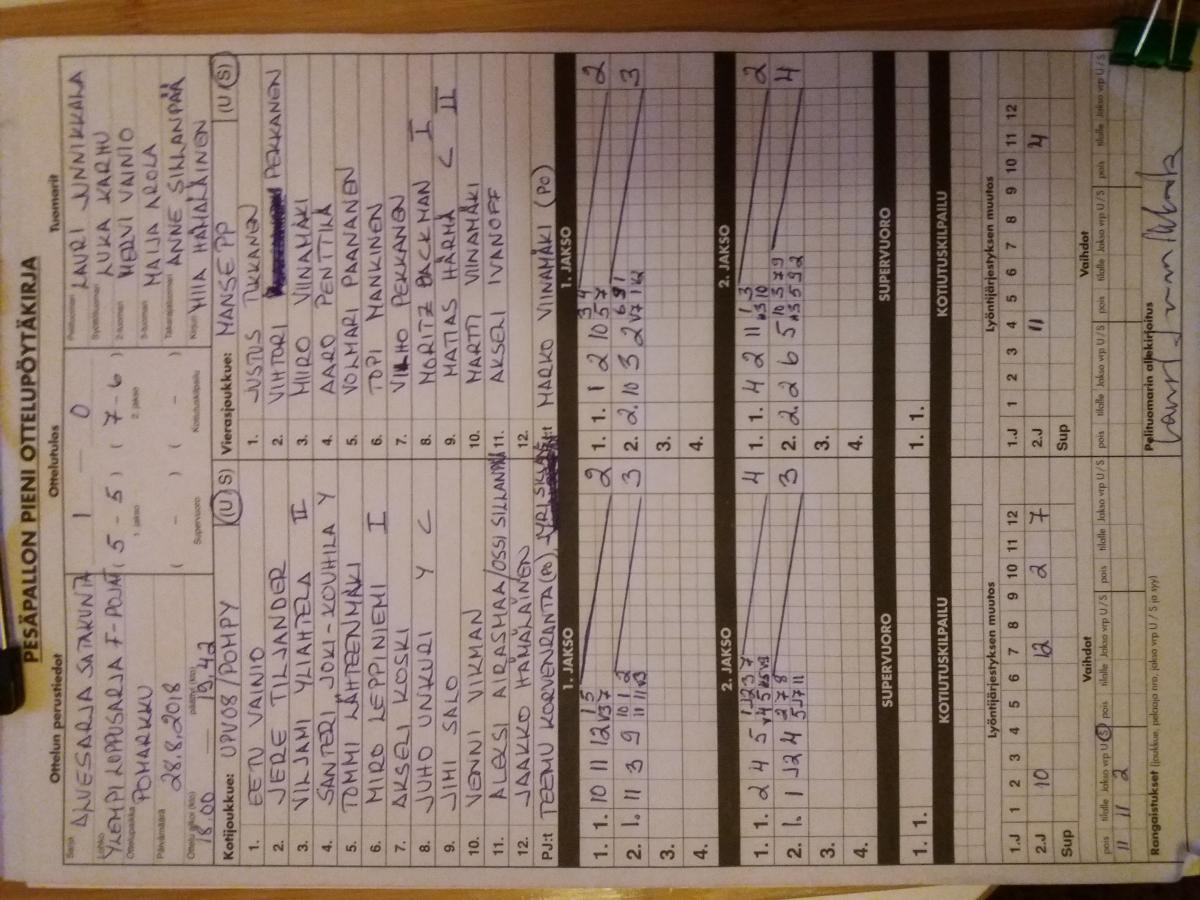 PESÄPALLON PIENI OTTELUPÖYTÄKIRJA
Ottelun perustiedot Ottelutulos Tuomarit
Sarja ALUESARJA SATAKUNTA
Lohko YLEMPI LOPPUSARJA F-POJAT
Ottelupaikka POMARKKU
Päivämäärä 28.8.2018
Ottelu alkoi (klo) 18.00 päättyi (klo) 19,42
1 0
( 5 - 5 ) ( 7 - 6 )
1. jakso 2. jakso
( - ) ( - )
Supervuoro Kotiutuskilpailu
Pelituomari LAURI JUNNIKKALA
Syöttötuomari LUKA KARHU
2-tuomari MERVI VAINIO
3-tuomari MAIJA AROLA
Takarajatuomari ANNE SILLANPÄÄ
Kirjuri MIIA HÄMÄLÄINEN
Kotijoukkue: UPV08/POMPY (U S)
1. EETU VAINIO
2. JERE TILJANDER
3. VILJAMI YLIAHTELA II
4. SANTERI JOKI-KOUHILA Y
5. TOMMI LÄHTEENMÄKI
6. MIRO LEPPINIEMI I
7. AKSELI KOSKI
8. JUHO UNKURI Y C
9. JIMI SALO
10. VENNI VIKMAN
11. ALEKSI AIRASMAA/OSSI SILLANPÄÄ
12. JAAKKO HÄMÄLÄINEN
PJ:t TEEMU KORVENRANTA (PO),
Vierasjoukkue: MANSE PP (U S)
1. JUSTUS TUKKANEN
2. VIHTORI PEKKANEN
3. MIIRO VIINAMÄKI
4. AARO PENTTILÄ
5. VOLMARI PAANANEN
6. TOPI MANKINEN
7. VILHO PEKKANEN
8. MORITZ BACKMAN I
9. MATIAS HÄRMÄ C II
10. MARTTI VIINAMÄKI
11. AKSELI IVANOFF
12.
PJ:t MARKO VIINAMÄKI (PO)
1. JAKSO 1. JAKSO
1. 1. 10 11 12 2
2. 1. 11 3 9 3
3.
4.
1. 1. 1 2 10 2
2. 2. 10 3 2 3
3.
4.
2. JAKSO 2. JAKSO
1. 1. 2 4 5 4
2. 1. 1 12 4 3
3.
4.
1. 1. 4 2 11 2
2. 2. 2 6 5 4
3.
4.
SUPERVUORO SUPERVUORO
1. 1. 1. 1.
KOTIUTUSKILPAILU KOTIUTUSKILPAILU
Lyöntijärjestyksen muutos Lyöntijärjestyksen muutos
1.J 1 2 3 4 5 6 7 8 9 10 11 12
2.J 10 12 2 7
Sup
1.J 1 2 3 4 5 6 7 8 9 10 11 12
2.J 11 4
Sup
Vaihdot Vaihdot
pois tilalle Jakso vrp U / S pois tilalle Jakso vrp U / S pois tilalle Jakso vrp U / S
11 11 2
pois tilalle Jakso vrp U / S pois tilalle Jakso vrp U / S pois tilalle Jakso vrp U / S
Rangaistukset (joukkue, pelaaja nro, jakso vrp U / S ja syy)
Pelituomarin allekirjoitus